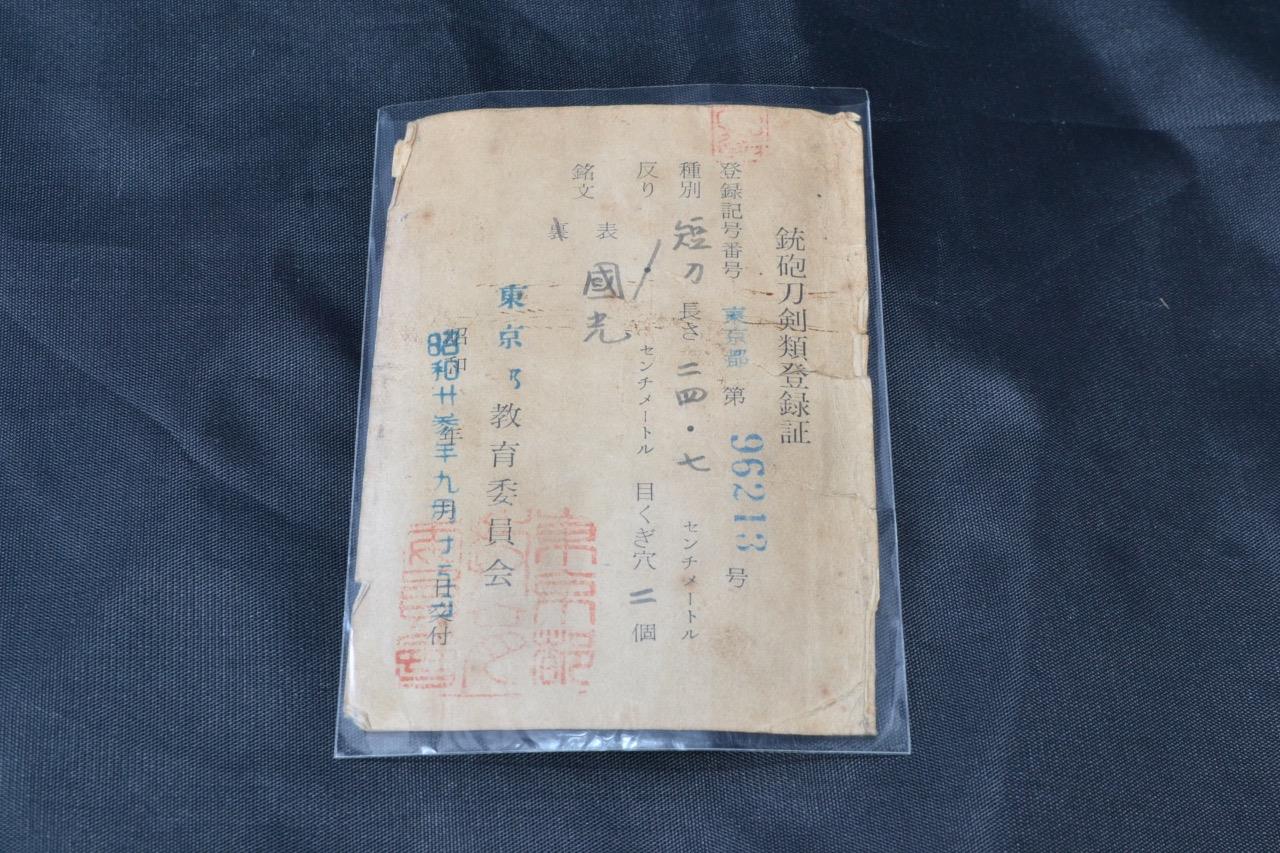 銃砲刀剣類登録証
登録記号番号 東京都 第 96213 号
種別 短刀 長さ 二四・七 センチメートル
反り ・ センチメートル 目くぎ穴 二 個
銘文 表 國光
裏
東京都教育委員会
昭和 年九月 日交付